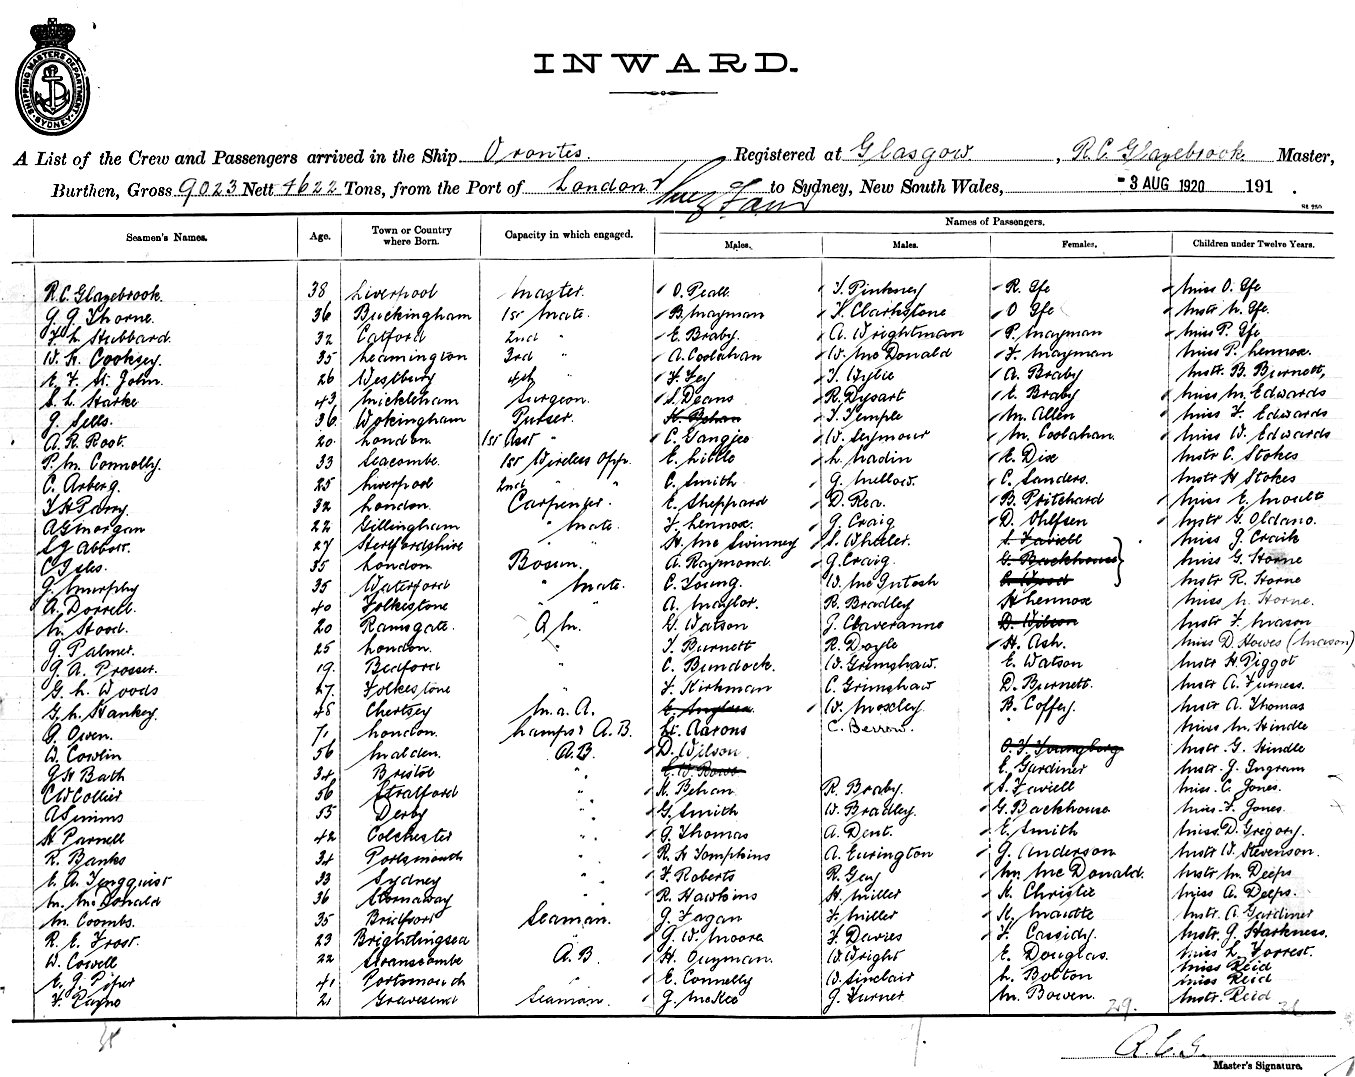 SHIPPING MASTERS DEPARTMENT
SYDNEY
INWARD.
A List of the Crew and Passengers arrived in the Ship Orontes. Registered at Glasgow, R.C. Glazebrook Master,
Burthen, Gross 9023 Nett 4622 Tons, from the Port of London & to Sydney, New South Wales, -3 AUG 1920 191 .
Seamen's Names. Age. Town or Country where Born. Capacity in which engaged. Names of Passengers.
Males. Males. Females. Children under Twelve Years.
R.C. Glazebrook 38 Liverpool Master. O. Peall J. Pinkney R. Gfe Miss O. Gfe
G G Thorne. 36 Buckingham 1st Mate. B. Mayman F. Clarkstone O Gfe Mstr N. Gfe.
F L Hubbard. 32 Catford 2nd " E. Braby. A. Wrightman P. Mayman Miss P. Gfe
W. H. Cooksey. 35 Leamington 3rd " A. Coolahan W. McDonald F. Mayman Miss P. Lennox.
E. F. St. John. 26 Westbury 4th " F. Fey J. Wylie A. Braby Mstr. B. Burnett,
S. L. Starke 43 Mickleham Surgeon. S. Deans R. Dysart E. Braby Miss M. Edwards
G. Sells. 36. Wokingham Purser. K. Behan J. Temple M. Allen Miss F. Edwards
A. R. Root. 20. London. 1st Asst " C. Gangjee W. Seymour M. Coolahan. Miss W. Edwards
P. M. Connolly. 33 Seacombe. 1st Wireless Opp. E. Little L. Madin E. Dix Mstr C. Stokes
C. Arberg. 25 Liverpool 2nd " " C. Smith G. Mellow. C. Sanders. Mstr H Stokes
J H Parry. 32 London. Carpenter. E. Sheppard D. Rea. B. Pritchard Miss E. Moult
A G Morgan 22 Gillingham " Mate. F. Lennox. G. Craig D. Ohlfsen Mstr G. Oldano.
S J Abbott. 27 Hertfordshire " H. McSwinney S. Wheeler. S. Faviell Miss J. Craik
C Isles. 35 London. Bosun. A. Raymond. G. Craig. G. Backhouse Miss G. Horne
G. Murphy 35 Waterford " Mate. C. Young. W. McIntosh C. Wood Mstr R. Horne
A. Dorrell. 40 Folkestone " " A. Maylor. R. Bradley H Lennox Miss N. Horne.
N. Hood. 20 Ramsgate. A.B. G. Watson J. Claveranne D. Wilson Mstr F. Mason
G. Palmer. 25 London. " J. Burnett R. Doyle H. Ash. Miss D. Howes (Mason)
G. A. Prosser. 19. Bedford " C. Bundock. W. Grimshaw. E. Watson Mstr H. Piggot
G. L. Woods 27. Folkestone " F. Kirkman C. Grimshaw D. Burnett. Mstr A. Furness.
G. L. Hankey. 48 Chertsey M. a. A. W. Moxley B. Coffey. Mstr A. Thomas
G. Owen. 71 London. Lamps & A.B. Aarons C. Berrow. Miss M. Hindle
W. Cowlin 56 Malden. A.B. D. Wilson O. F. Youngberg Mstr. G. Hindle
G H Bath 34 Bristol " C. W. Bowe E. Gardiner Mstr. J. Ingram
C W Collier 56 Stratford " K. Behan R. Braby. S. Faviell Miss. C. Jones.
A Simms 55 Derby " G. Smith W. Bradley. G. Backhouse Miss. F. Jones.
H Parnell 42 Colchester " G. Thomas A. Dent. E. Smith Miss. D. Gregory.
R. Banks 34 Portsmouth " R. H Tompkins A. Eurington G. Anderson Mstr W. Stevenson.
E. A. Tengquist 33 Sydney " F. Roberts R. Gay M. McDonald. Mstr M. Deeps
M. McDonald 36 Stornaway " R. Hawkins H. Miller K. Christie Miss A. Deeps.
M. Coombs. 35 Bridport Seaman. G. Fagan F. Miller Mstr. A. Gardiner
R. E. Frost. 23 Brightlingsea " G. W. Moore F. Davies F. Cassidy. Mstr. G. Harkness.
W. Cowell 22 A.B. H. Guyman. W. Wright E. Douglas. Miss L. Forrest.
E. G. Piper 41 Portsmouth " E. Connelly W. Sinclair L. Bolton Miss Reid
Miss Reid
21 Gravesend Seaman. G. McKee G. Turner M. Bowen. Mstr. Reid
29.
R.C.G.
Master's Signature.